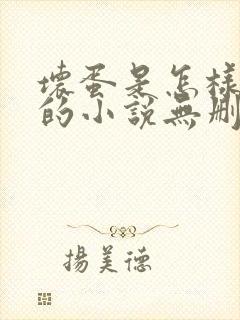 壞蛋是怎樣
的小說無刪
揚美德